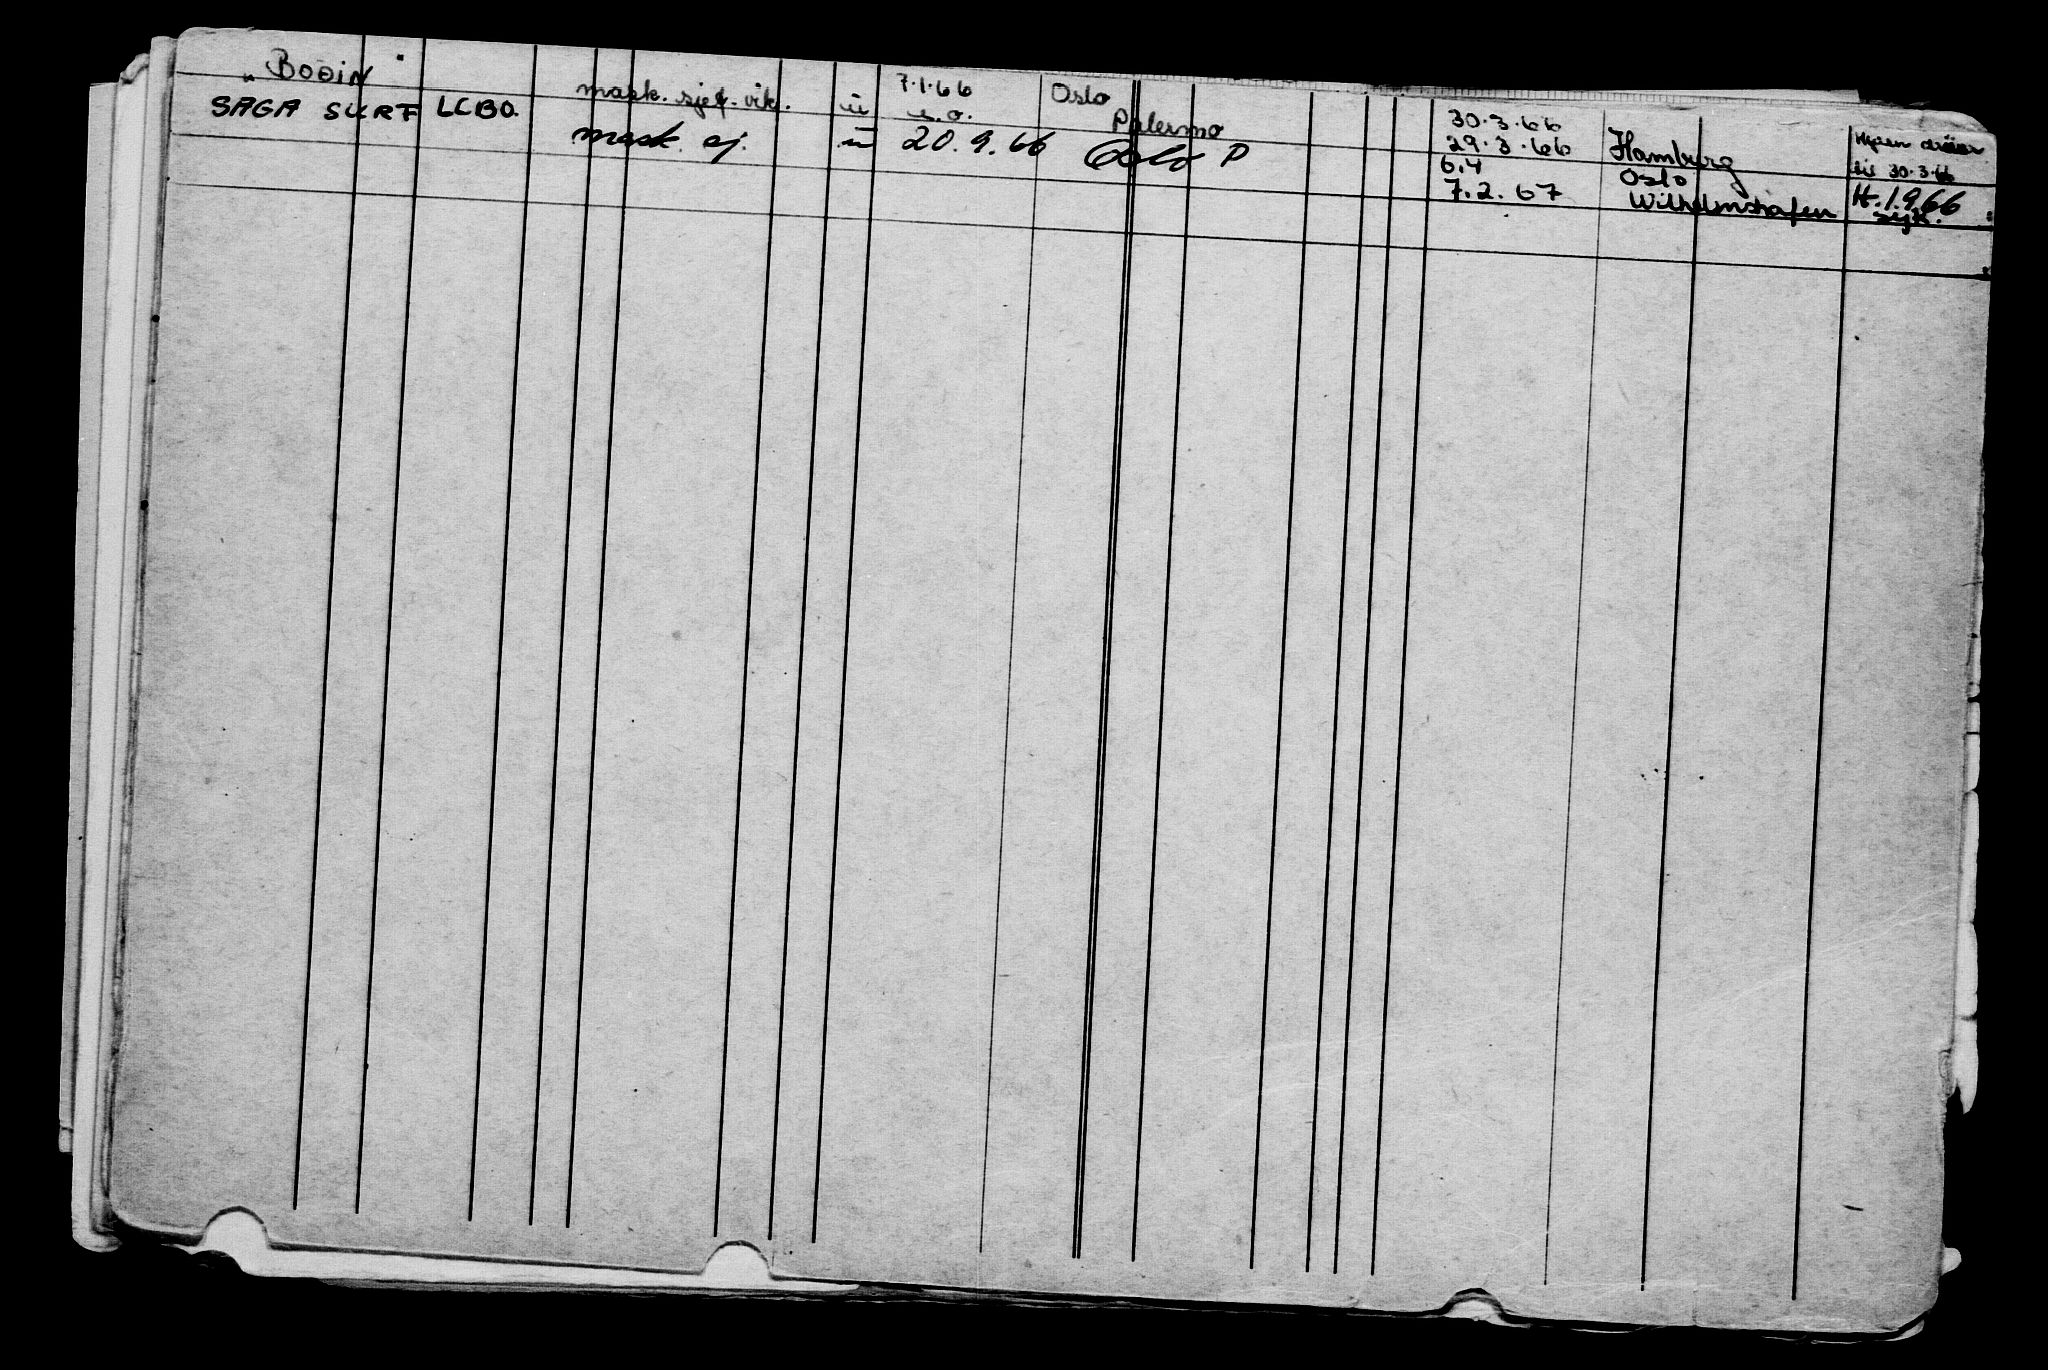 "BODIN" mask. sjef. vik. u 7.1.66 Oslo 30.3.66 Hamburg
SAGA SURF LCBO. u.o. Palermo 29.3.66
mask. sj. u 20.9.66 Oslo P 6.4 Oslo til 30.3.66
7.2.67 Wilhelmshafen H.1.9.66
syk.